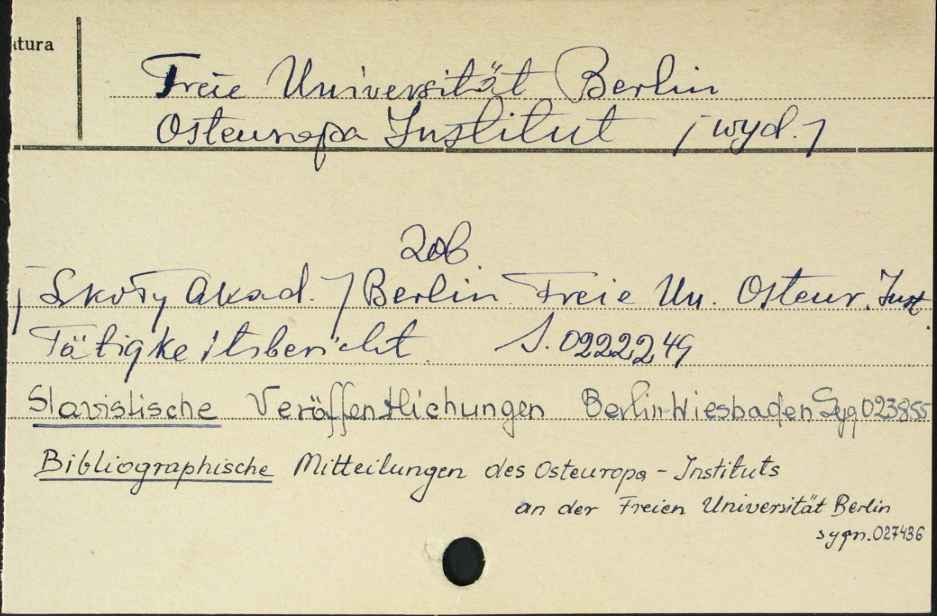 atura
Freie Universität Berlin
Osteuropa Institut / wyd. /
zob
/ Szkoły Akad. / Berlin Freie Un. Osteur. Inst.
Tätigkeitsbericht S. 0222249
Slavistische Veröffentlichungen Berlin-Wiesbaden Syg 023855
Bibliographische Mitteilungen des Osteuropa-Instituts
an der Freien Universität Berlin
sygn. 027436